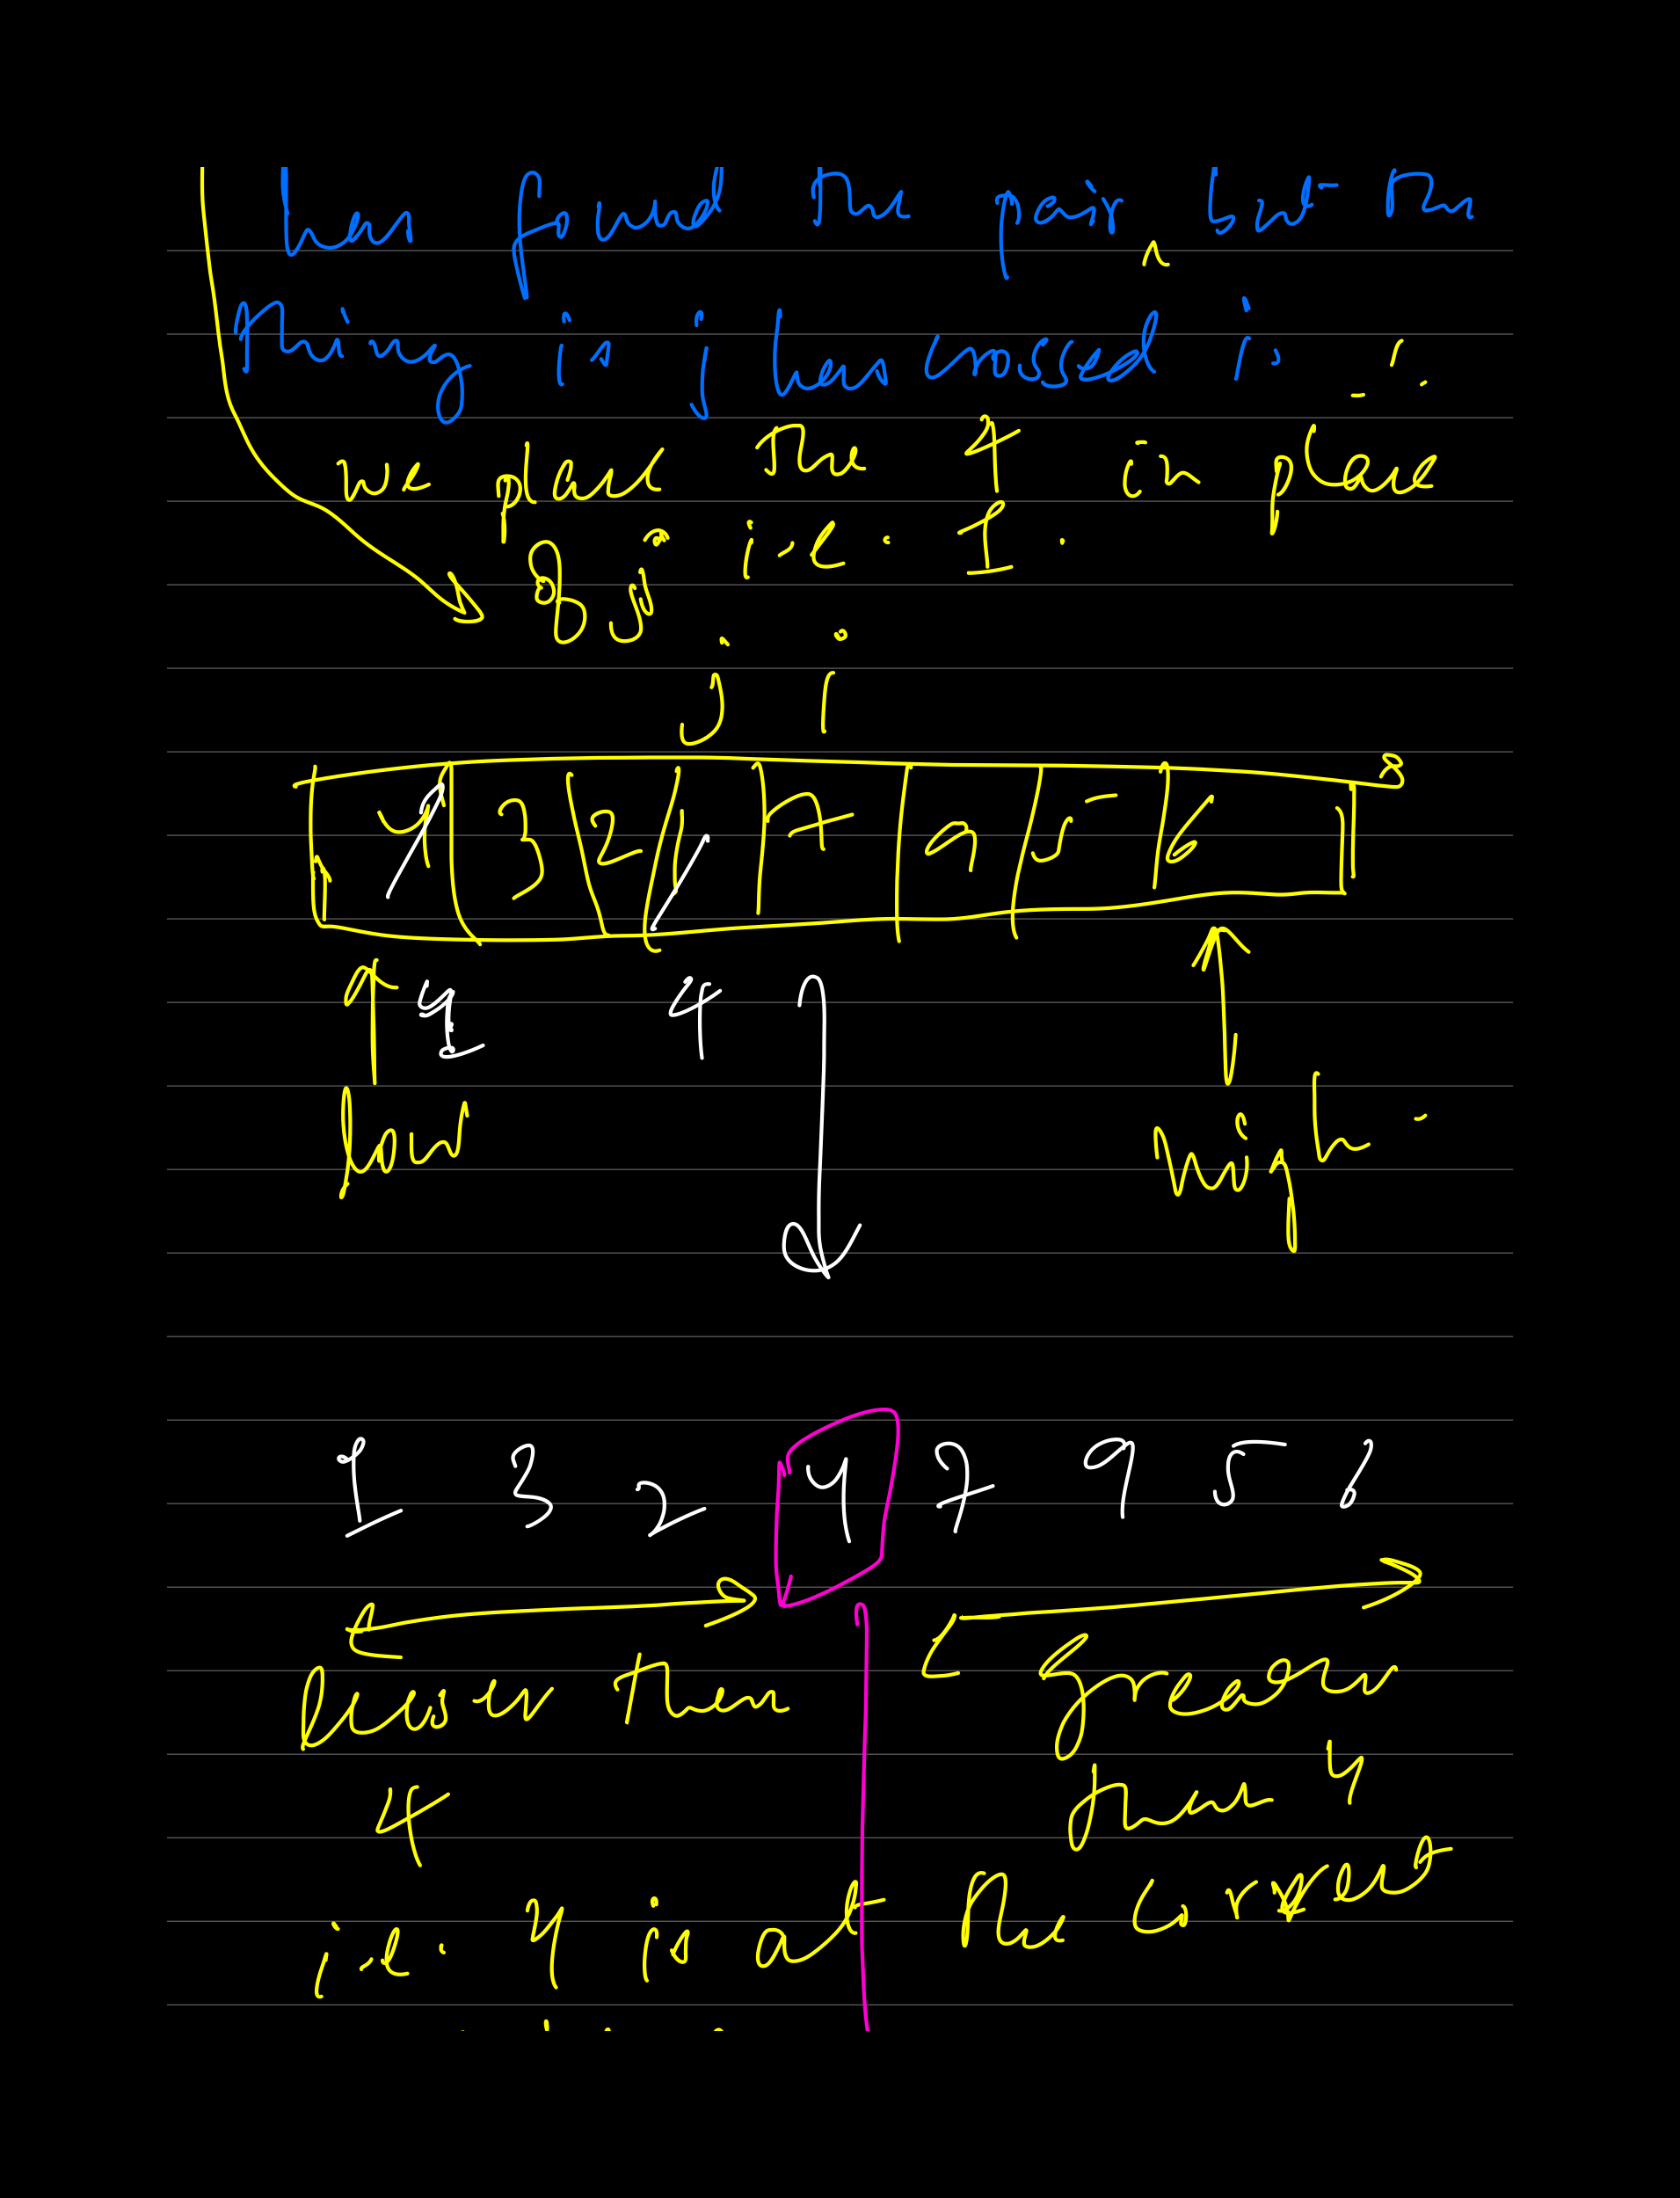 has found the pair but the
thing is j has crossed i.
we place the 4 in place
of j i.e. 1.
j i
4 3 2 1 7 9 5 6
4 4
low high
1 3 2 4 7 9 5 6
lesser then greater
4 than 4
i.e. 4 is at the correct